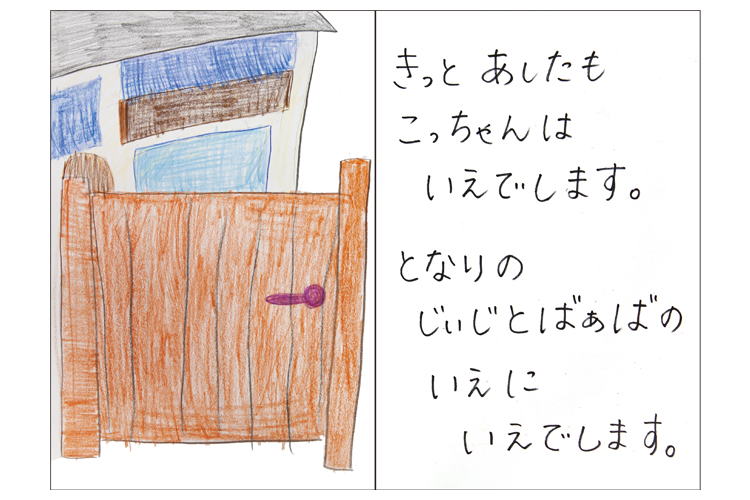 きっと あしたも
こっちゃんは
いえでします。
となりの
じぃじとばぁばの
いえに
いえでします。